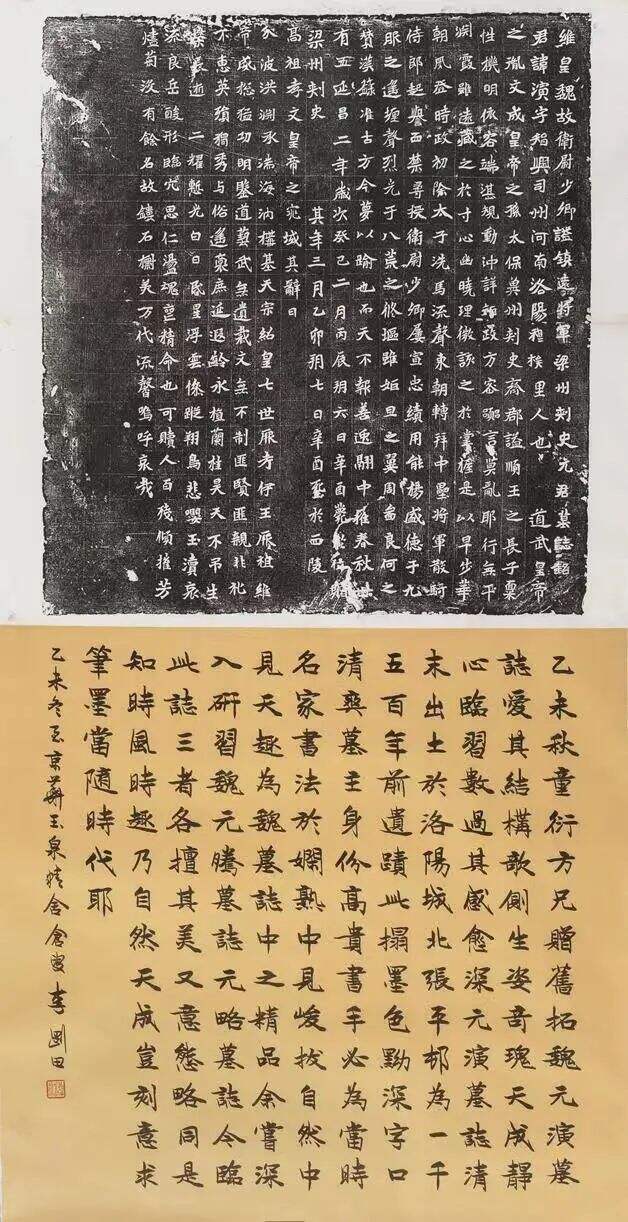 維皇魏故衛尉少卿謚鎮遠將軍梁州刺史元君墓誌銘
君諱演字智興司州河南洛陽穆族里人也 道武皇帝
之胤文成皇帝之孫太保冀州刺史齊郡謚順王之長子稟
性機明依容端湛規動沖詳政方容言亂耶行無平
淵霞雖遠藏之於寸心幽曉理微談之於掌握是以早步華
朝風登時政初除太子洗馬流聲東朝轉拜中壘將軍散騎
侍郎起舉西禁尋授衛尉少卿屢宣忠績用能楊盛德于九
那之遙堙聲烈光于八荒之攸區雖姬旦之翼周留良何之
贊漢錄准古方今蔑以踰也而天不報善逸翮中摧春秋卅
有五延昌二年歲次癸巳二月丙辰朔六日辛酉薨贈
梁州刺史 其年三月乙卯朔七日辛酉葬於西陵
高祖孝文皇帝之兆域其辭曰
永波洪淵承湍海汭權基天宗紹皇七世厥考伊王厥祖維
帝成猛功明鑒道藝武無遺裁文無不制匪賢匪親非禮
不惠英猗獨秀与俗遙稟庶延遐齡永植蘭桂昊天不弔生
榮長逝二耀慙光白日昏浮雲悽蹤翔鳥悲嚶玉瀆哀
流良岳酸形臨穴思仁盪魂亶精命也可贖人百殘傾摧芳
燼蔔没有餘名故鏤石銘美万代流聲嗚呼哀哉
乙未秋童衍方兄贈舊拓魏元演墓
誌愛其結構欹側生姿奇瑰天成靜
心臨習數過其感愈深元演墓誌清
末出土於洛陽城北張平邨為一千
五百年前遺蹟此搨墨色黝深字口
清爽墓主身份高貴書手必為當時
名家書法於嫻熟中見峻拔自然中
見天趣為魏墓誌中之精品余嘗深
入研習魏元騰墓誌元略墓誌今臨
此誌三者各擅其美又意態略同是
知時風時趣乃自然天成豈刻意求
筆墨當隨時代耶
乙未冬至京華玉泉精舍倉叟李剛田